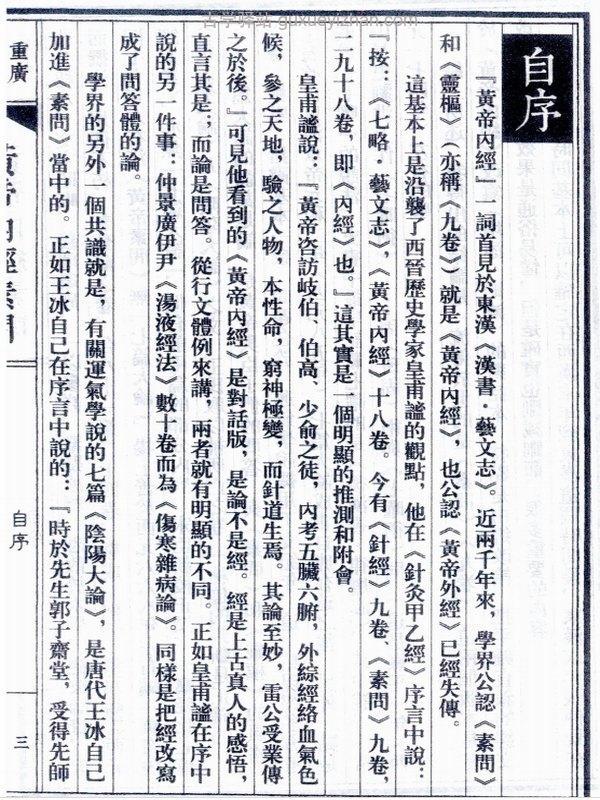 古学驿站 guxueyizhan.com
自序
『黃帝內經』一詞首見於東漢《漢書·藝文志》。近兩千年來，學界公認《素問》
和《靈樞》（亦稱《九卷》）就是《黃帝內經》，也公認《黃帝外經》已經失傳。
這基本上是沿襲了西晉歷史學家皇甫謐的觀點，他在《針灸甲乙經》序言中說：
『按：《七略·藝文志》，《黃帝內經》十八卷。今有《針經》九卷、《素問》九卷，
二九十八卷，即《內經》也。』這其實是一個明顯的推測和附會。
皇甫謐說：『黃帝咨訪岐伯、伯高、少俞之徒，內考五臟六腑，外綜經絡血氣色
候，參之天地，驗之人物，本性命，窮神極變，而針道生焉。其論至妙，雷公受業傳
之於後。』可見他看到的《黃帝內經》是對話版，是論不是經。經是上古真人的感悟，
直言其是；而論是問答。從行文體例來講，兩者就有明顯的不同。正如皇甫謐在序中
說的另一件事：仲景廣伊尹《湯液經法》數十卷而為《傷寒雜病論》。同樣是把經改寫
成了問答體的論。
學界的另外一個共識就是，有關運氣學說的七篇《陰陽大論》，是唐代王冰自己
加進《素問》當中的。正如王冰自己在序言中說的：『時於先生郭子齋堂，受得先師
重廣
內經素問
自序
三